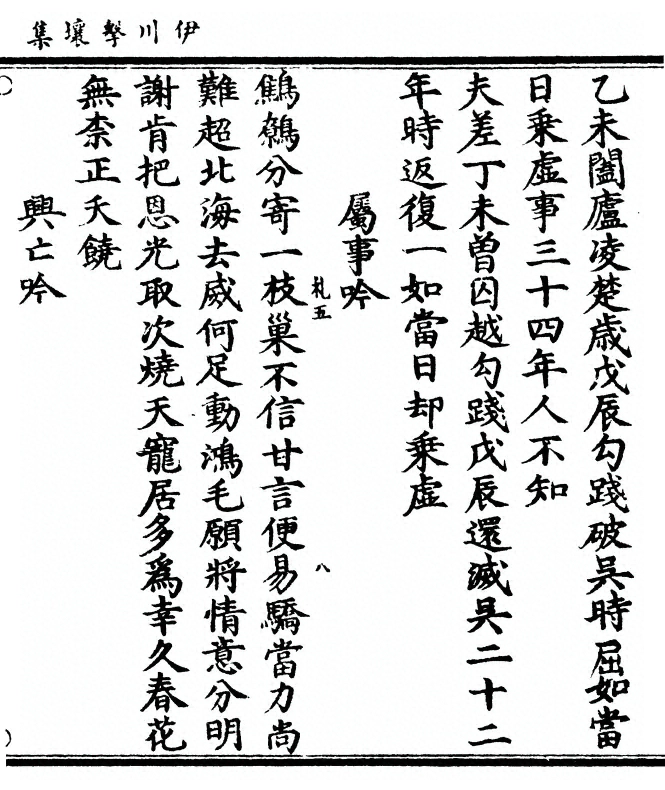 伊川擊壤集
乙未闔廬凌楚歳戊辰勾踐破吳時屈如當
日乗虛事三十四年人不知
夫差丁未曾囚越勾踐戊辰還滅吳二十二
年時返復一如當日却乗虛
屬事吟
札五
八
鷦鷯分寄一枝巢不信甘言便易驕當力尚
難超北海去威何足動鴻毛願將情意分明
謝肯把恩光取次燒天寵居多爲幸久春花
無柰正夭饒
興亡吟